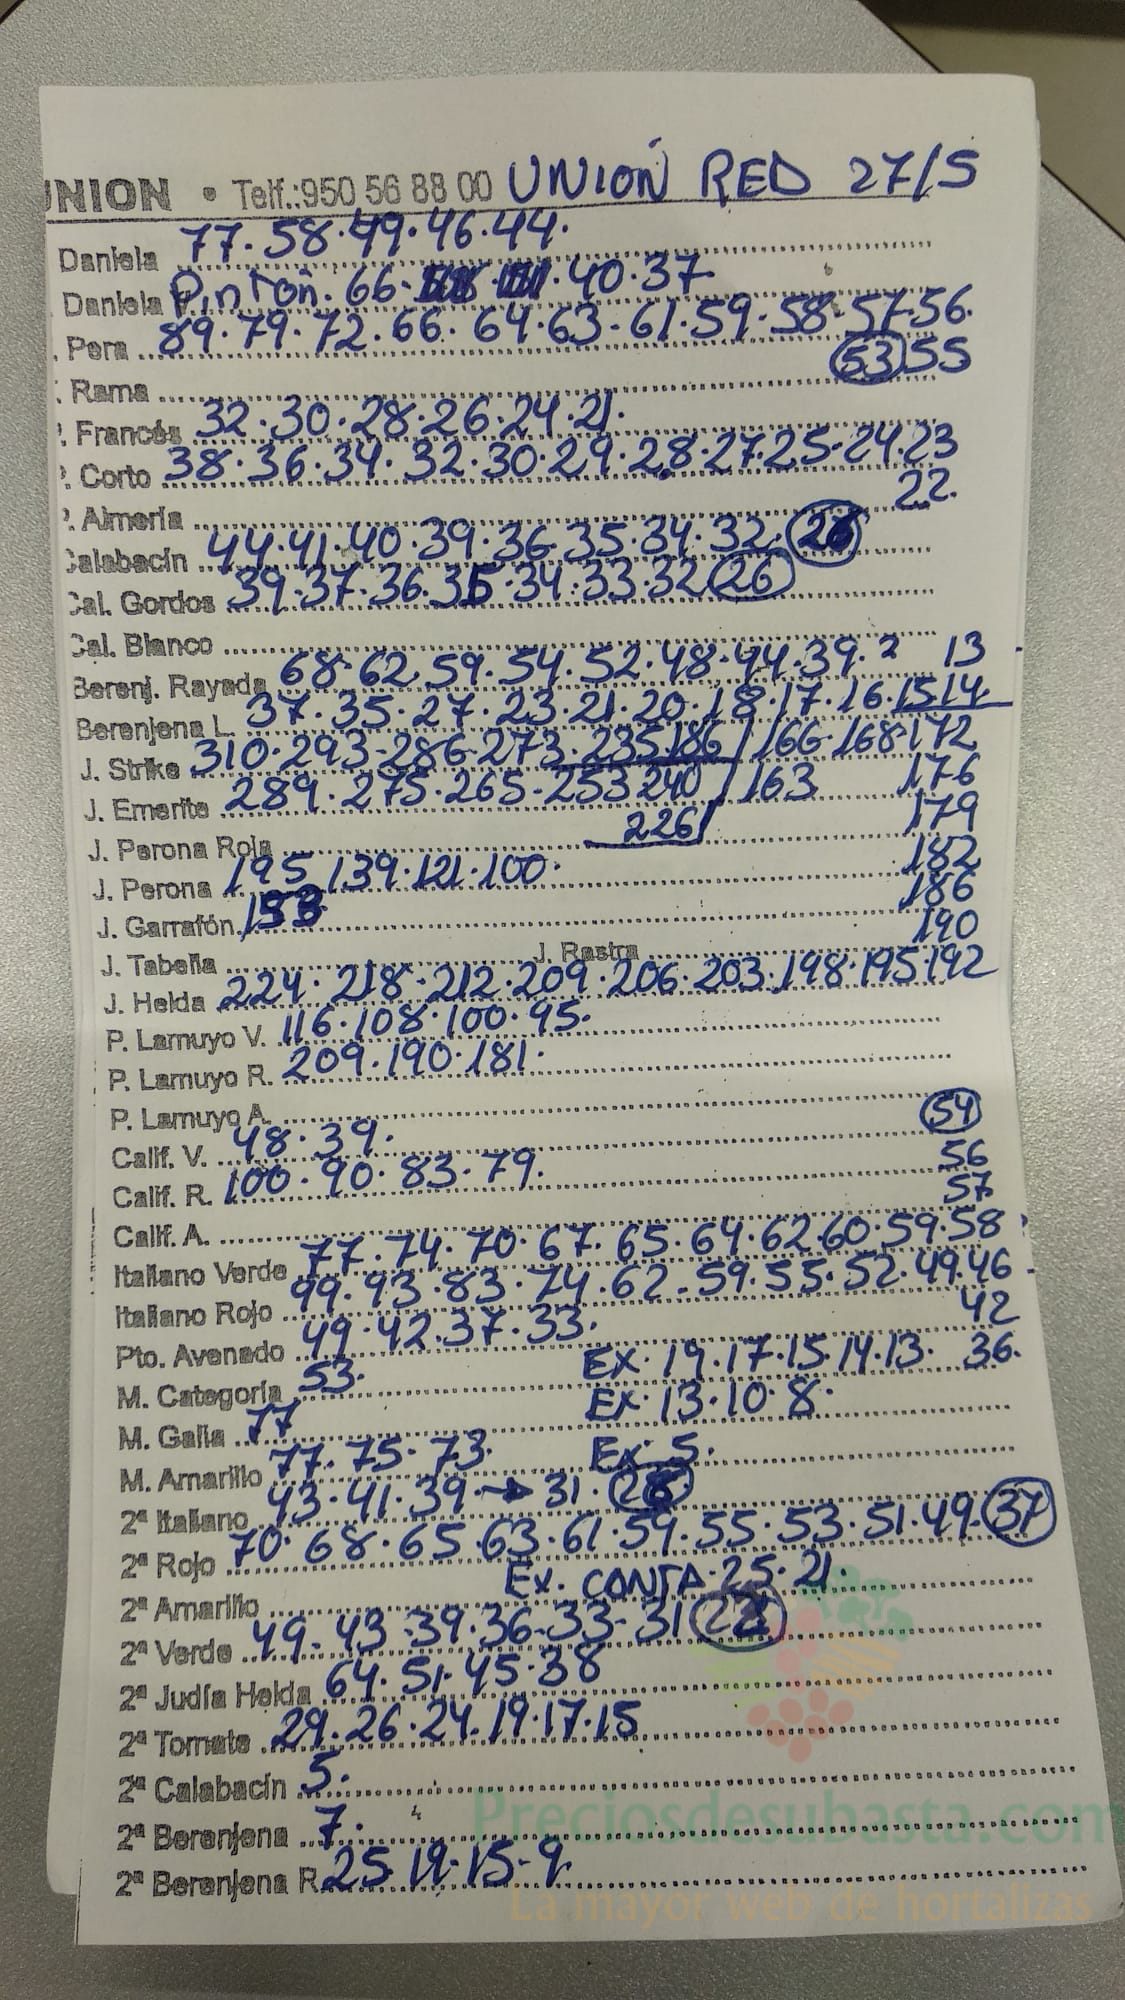 UNION • Telf.:950 56 88 00 UNION RED 27/5
Daniela 77.58.49.46.44.
Daniela Pintón. 66. 40.37
Pera 89.79.72.66.64.63-61.59.58.57.56.
Rama 53 55
Francés 32.30.28.26.24.21.
Corto 38.36.34.32.30.29.28.27.25.24.23
Almería 22.
Calabacín 44.41.40.39.36.35.34.32.
Cal. Gordos 39.37.36.35.34.33.32 26
Cal. Blanco
Berenj. Rayada 68.62.59.54.52.48.44.39. 13
Berenjena L. 37.35.27.23.21.20.18.17.16.15 14
J. Strike 310.293-286-273.235 186 166.168.172
J. Emerite 289.275.265-253 240 163 176
J. Perona Roja 226 179
J. Perona 195 139.121.100. 182
J. Garrafón 186
190
J. Tabella J. Rastra
J. Helda 224.218-212.209.206.203.198.195.192
P. Lamuyo V. 116.108.100.95.
P. Lamuyo R. 209.190.181.
P. Lamuyo A. 54
Calif. V. 48.39. 56
Calif. R. 100.90.83.79. 57
Calif. A.
Italiano Verde 77.74.70.67.65.64.62.60.59.58
Italiano Rojo 99.93.83.74.62.59.55.52.49.46
Pto. Avenado 49.42.37.33. 42
M. Categoría 53. EX. 19.17.15.14.13. 36.
M. Galia 77 EX. 13.10.8.
M. Amarillo 77.75.73. Ex. 5.
2ª Italiano 43.41.39 → 31.
2ª Rojo 70.68.65.63.61.59.55.53.51.49. 37
2ª Amarillo Ex. CONTA.25.21.
2ª Verde 49-43-39.36-33-31
2ª Judía Helda 64.51.45.38
2ª Tomate 29.26.24.19.17.15
2ª Calabacín 5.
Preciosdesubasta.com
2ª Berenjena 7.
2ª Berenjena R. 25.19-15-9.
La mayor web de hortalizas